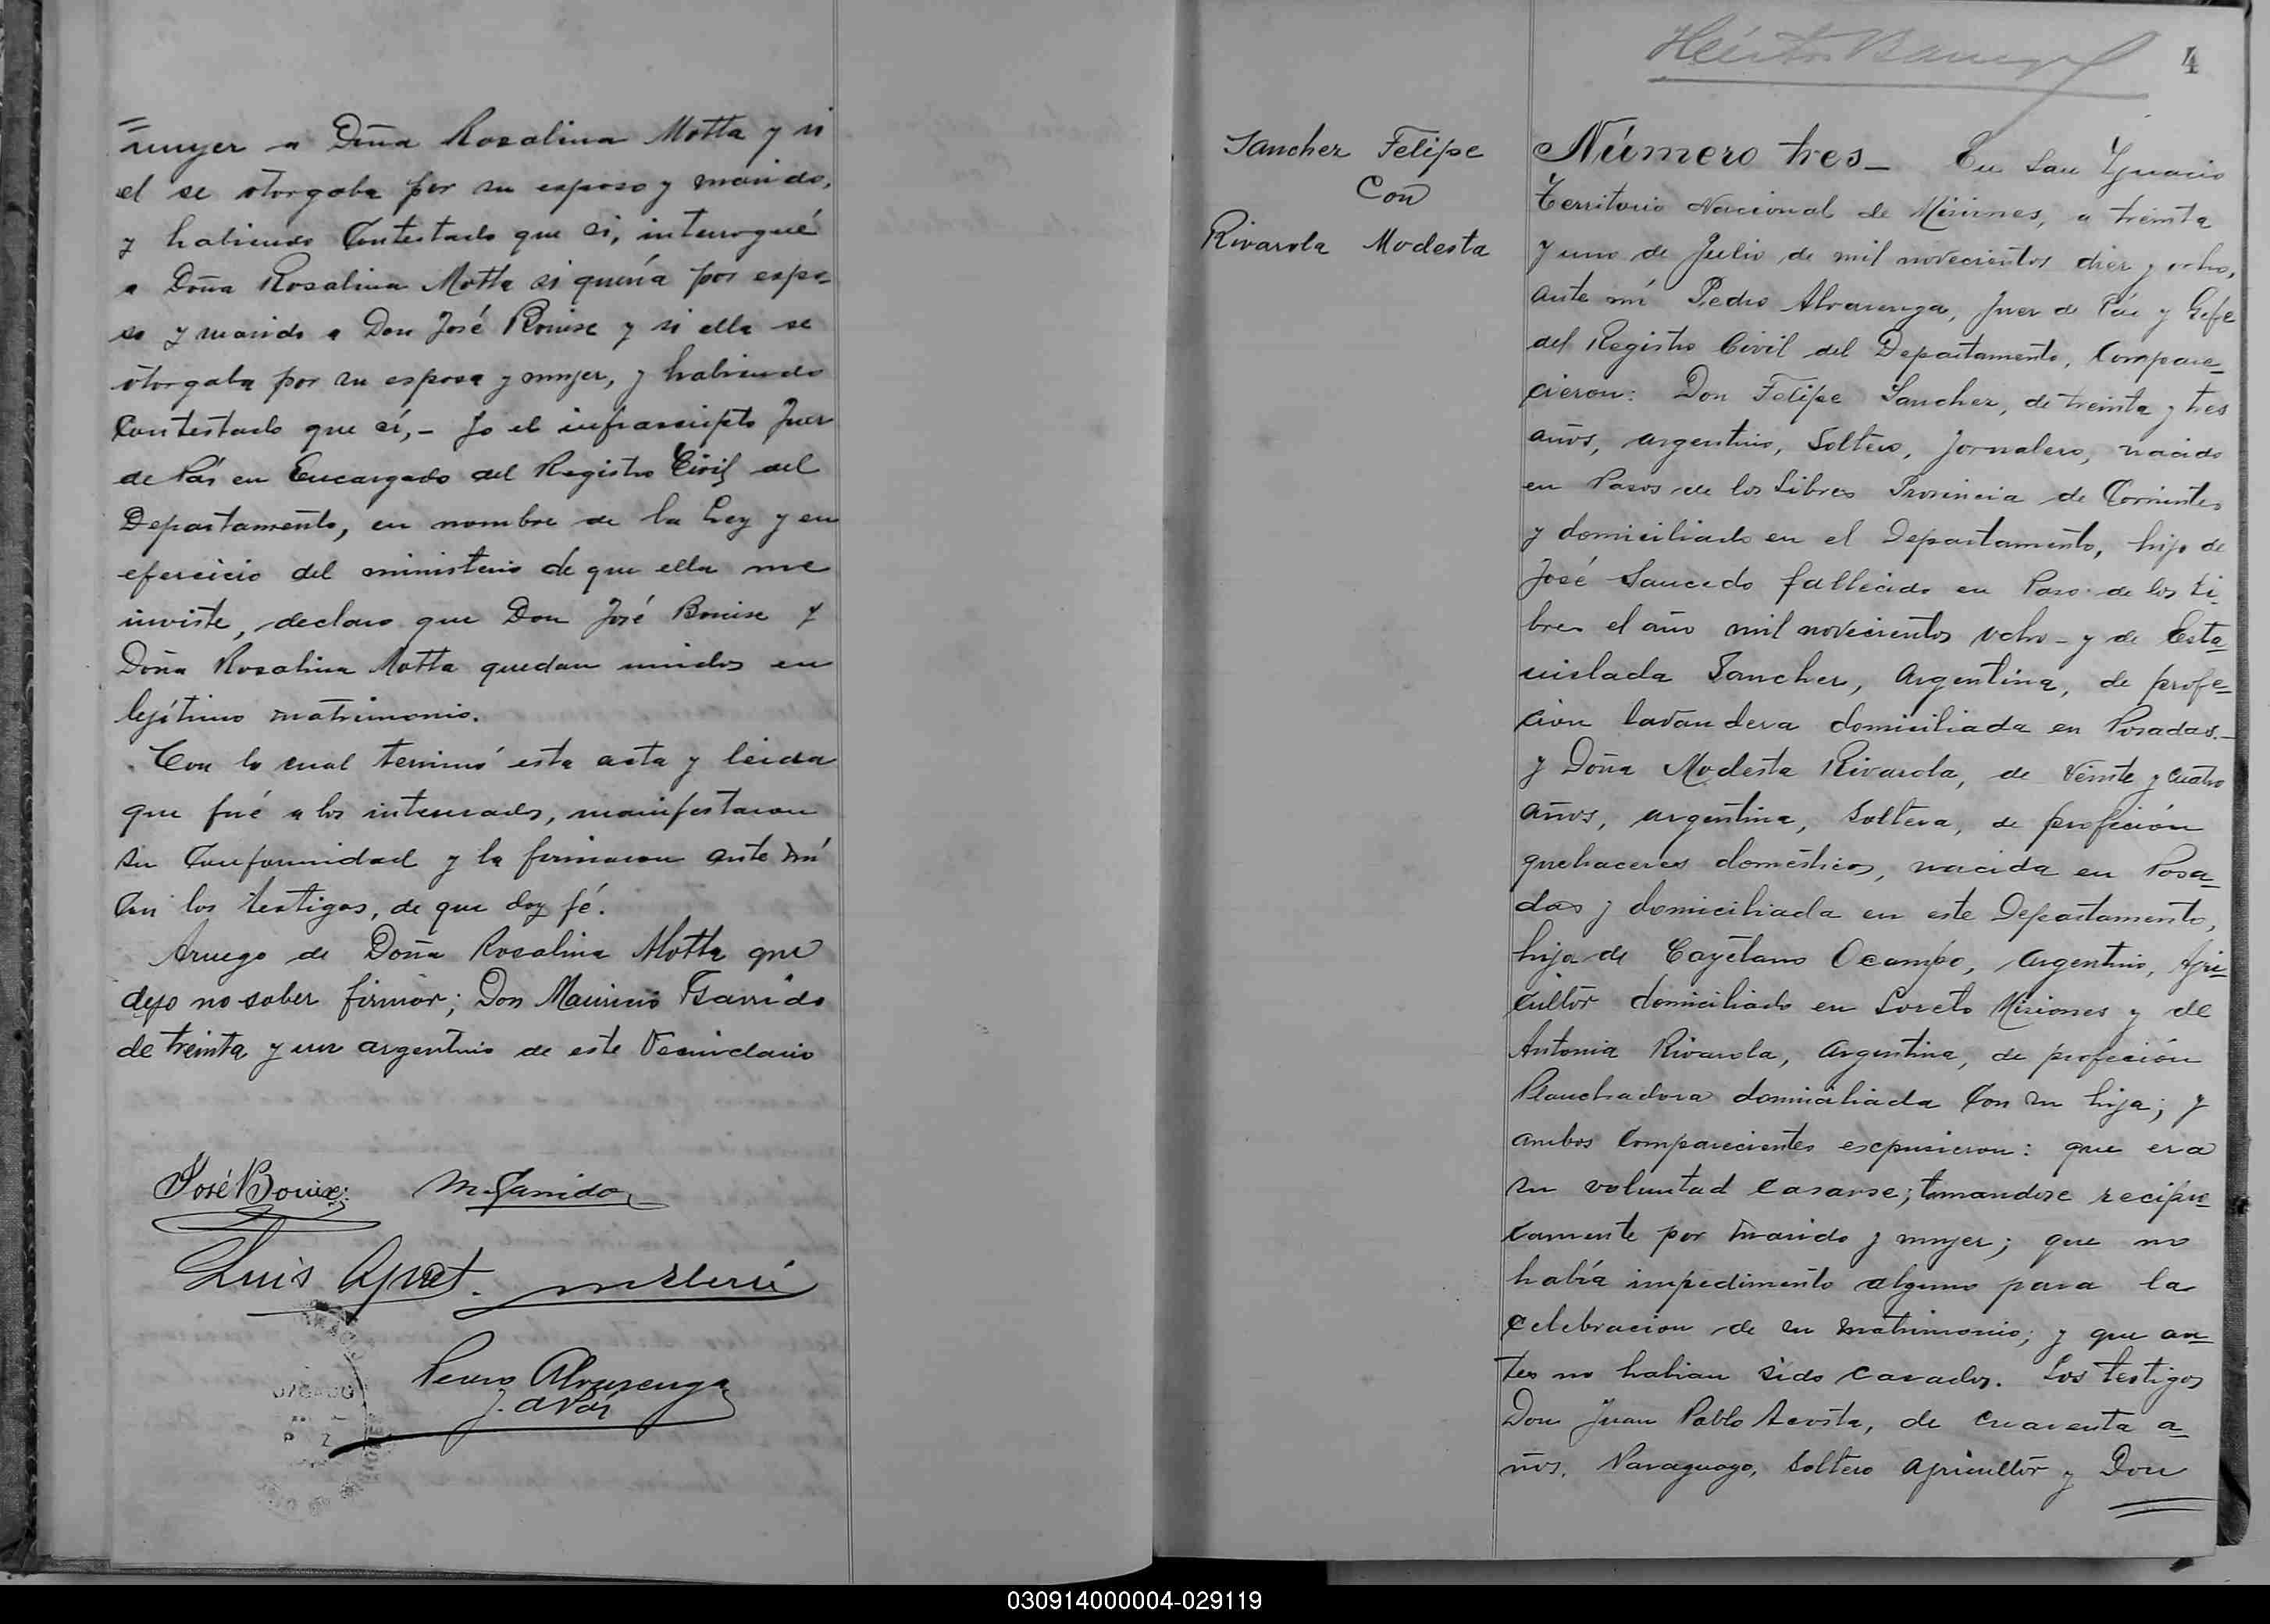 =mujer a Doña Rosalina Motta y si
el se otorgaba por su esposo y marido,
y habiendo Contestado que si, interrogué
a Doña Rosalina Motta si quería por espo-
so y marido a Don José Bouix y si ella se
otorgaba por su esposa y mujer, y habiendo
Contestado que sí,- Yo el infrascripto Juez
de Pás en Encargado del Registro Civil del
Departamento, en nombre de la Ley y en
efercicio del ministerio de que ella me
inviste, declaro que Don José Bouix y
Doña Rosalina Motta quedan unidos en
lejítimo matrimonio.
Con lo cual terminó esta acta y leida
que fué a los interesados, manifestaron
su Conformidad y la firmaron ante mí
Con los testigos, de que doy fé.
Aruego de Doña Rosalina Motta que
dejo no saber firmar; Don Mauricio Garrido
de treinta y un argentino de este Vecindario
José Bouix M. Garrido
Luis
Pedro Alvarenga
J. de Páz
4
Sanchez Felipe
Con
Rivarola Modesta
Número tres_ En San Ygnacio
Territorio Nacional de Misiones, a treinta
y uno de Julio de mil novecientos diez y ocho,
ante mí Pedro Alvarenga, Juez de Páz y Gefe
del Registro Civil del Departamento, Compare-
cieron: Don Felipe Sanchez, de treinta y tres
años, argentino, Soltero, Jornalero, nacido
en Pasos de los Libres Provincia de Corrientes
y domiciliado en el Departamento, hijo de
José Saucedo fallecido en Paso de los Li-
bres el año mil novecientos ocho - y de Esta-
nislada Sanchez, Argentina, de profe-
cion lavandera domiciliada en Posadas.-
y Doña Modesta Rivarola, de Veinte y cuatro
años, argentina, Soltera, de profeción
quehaceres domésticos, nacida en Posa-
das y domiciliada en este Departamento,
hija de Cayetano Ocampo, Argentino, Agri-
cultor domiciliado en Loreto Misiones y de
Antonia Rivarola, Argentina, de profeción
Planchadora domiciliada Con su hija; y
ambos Comparecientes escpusieron: que era
su voluntad casarse; tomandose recipro-
camente por marido y mujer; que no
había impedimento alguno para la
celebracion de su matrimonio; y que an-
tes no habian sido casados. Los testigos
Don Juan Pablo Acosta, de cuarenta a-
ños, Paraguayo, Soltero Agricultor y Don
030914000004-029119